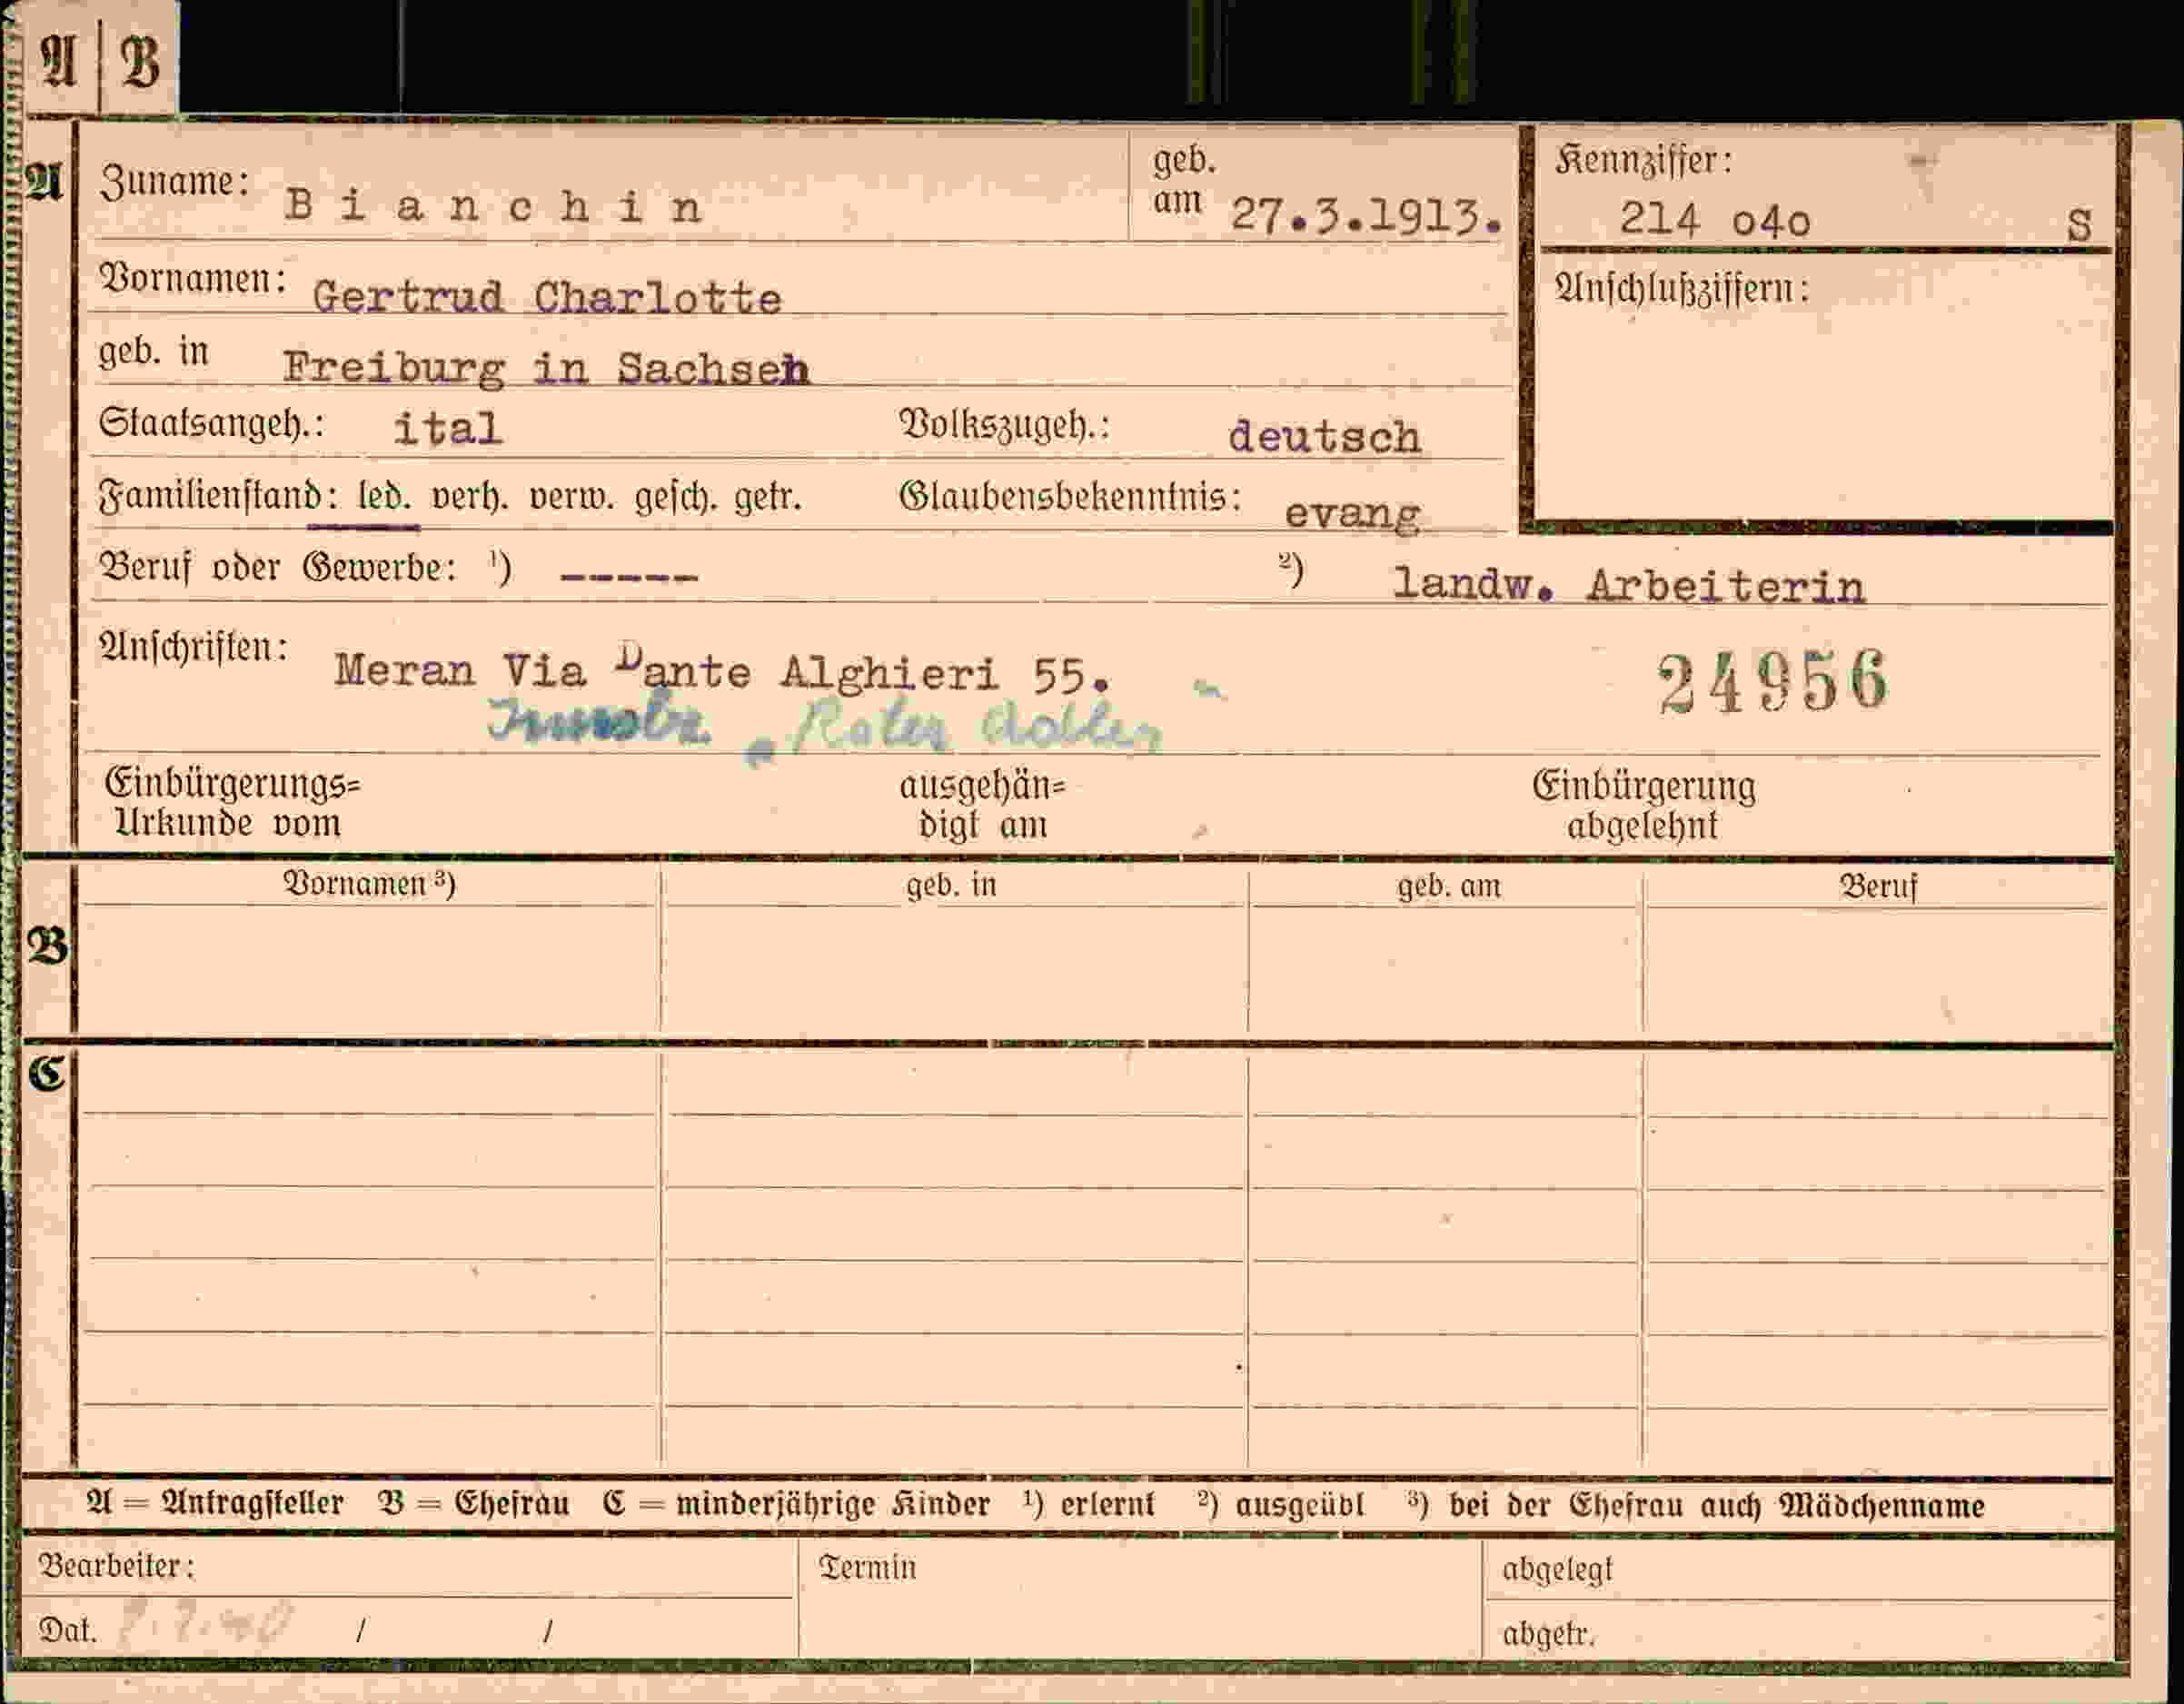 A | B
A
Zuname: Bianchin
geb. am 27.3.1913.
Kennziffer:
214 o4o S
Vornamen: Gertrud Charlotte
Anschlußziffern:
geb. in Freiburg in Sachsen
Staatsangeh.: ital Volkszugeh.: deutsch
Familienstand: led. verh. verw. gesch. getr. Glaubensbekenntnis: evang
Beruf oder Gewerbe: ¹) ----- ²) landw. Arbeiterin
Anschriften: Meran Via Dante Alghieri 55. 24956
Innsbr. "Roter Adler"
Einbürgerungs= ausgehän= Einbürgerung
Urkunde vom digt am abgelehnt
Vornamen ³) geb. in geb. am Beruf
B
C
A = Antragsteller B = Ehefrau C = minderjährige Kinder ¹) erlernt ²) ausgeübt ³) bei der Ehefrau auch Mädchenname
Bearbeiter: Termin abgelegt
Dat. / / abgetr.